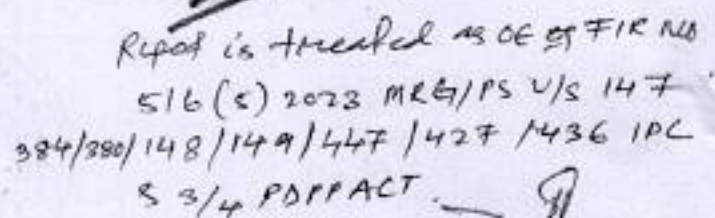 Report is treated as OE of FIR NO
516(5)2023 MRG/PS U/S 147
384/380/148/149/447/427/436 IPC
& 3/4 PDPP ACT.